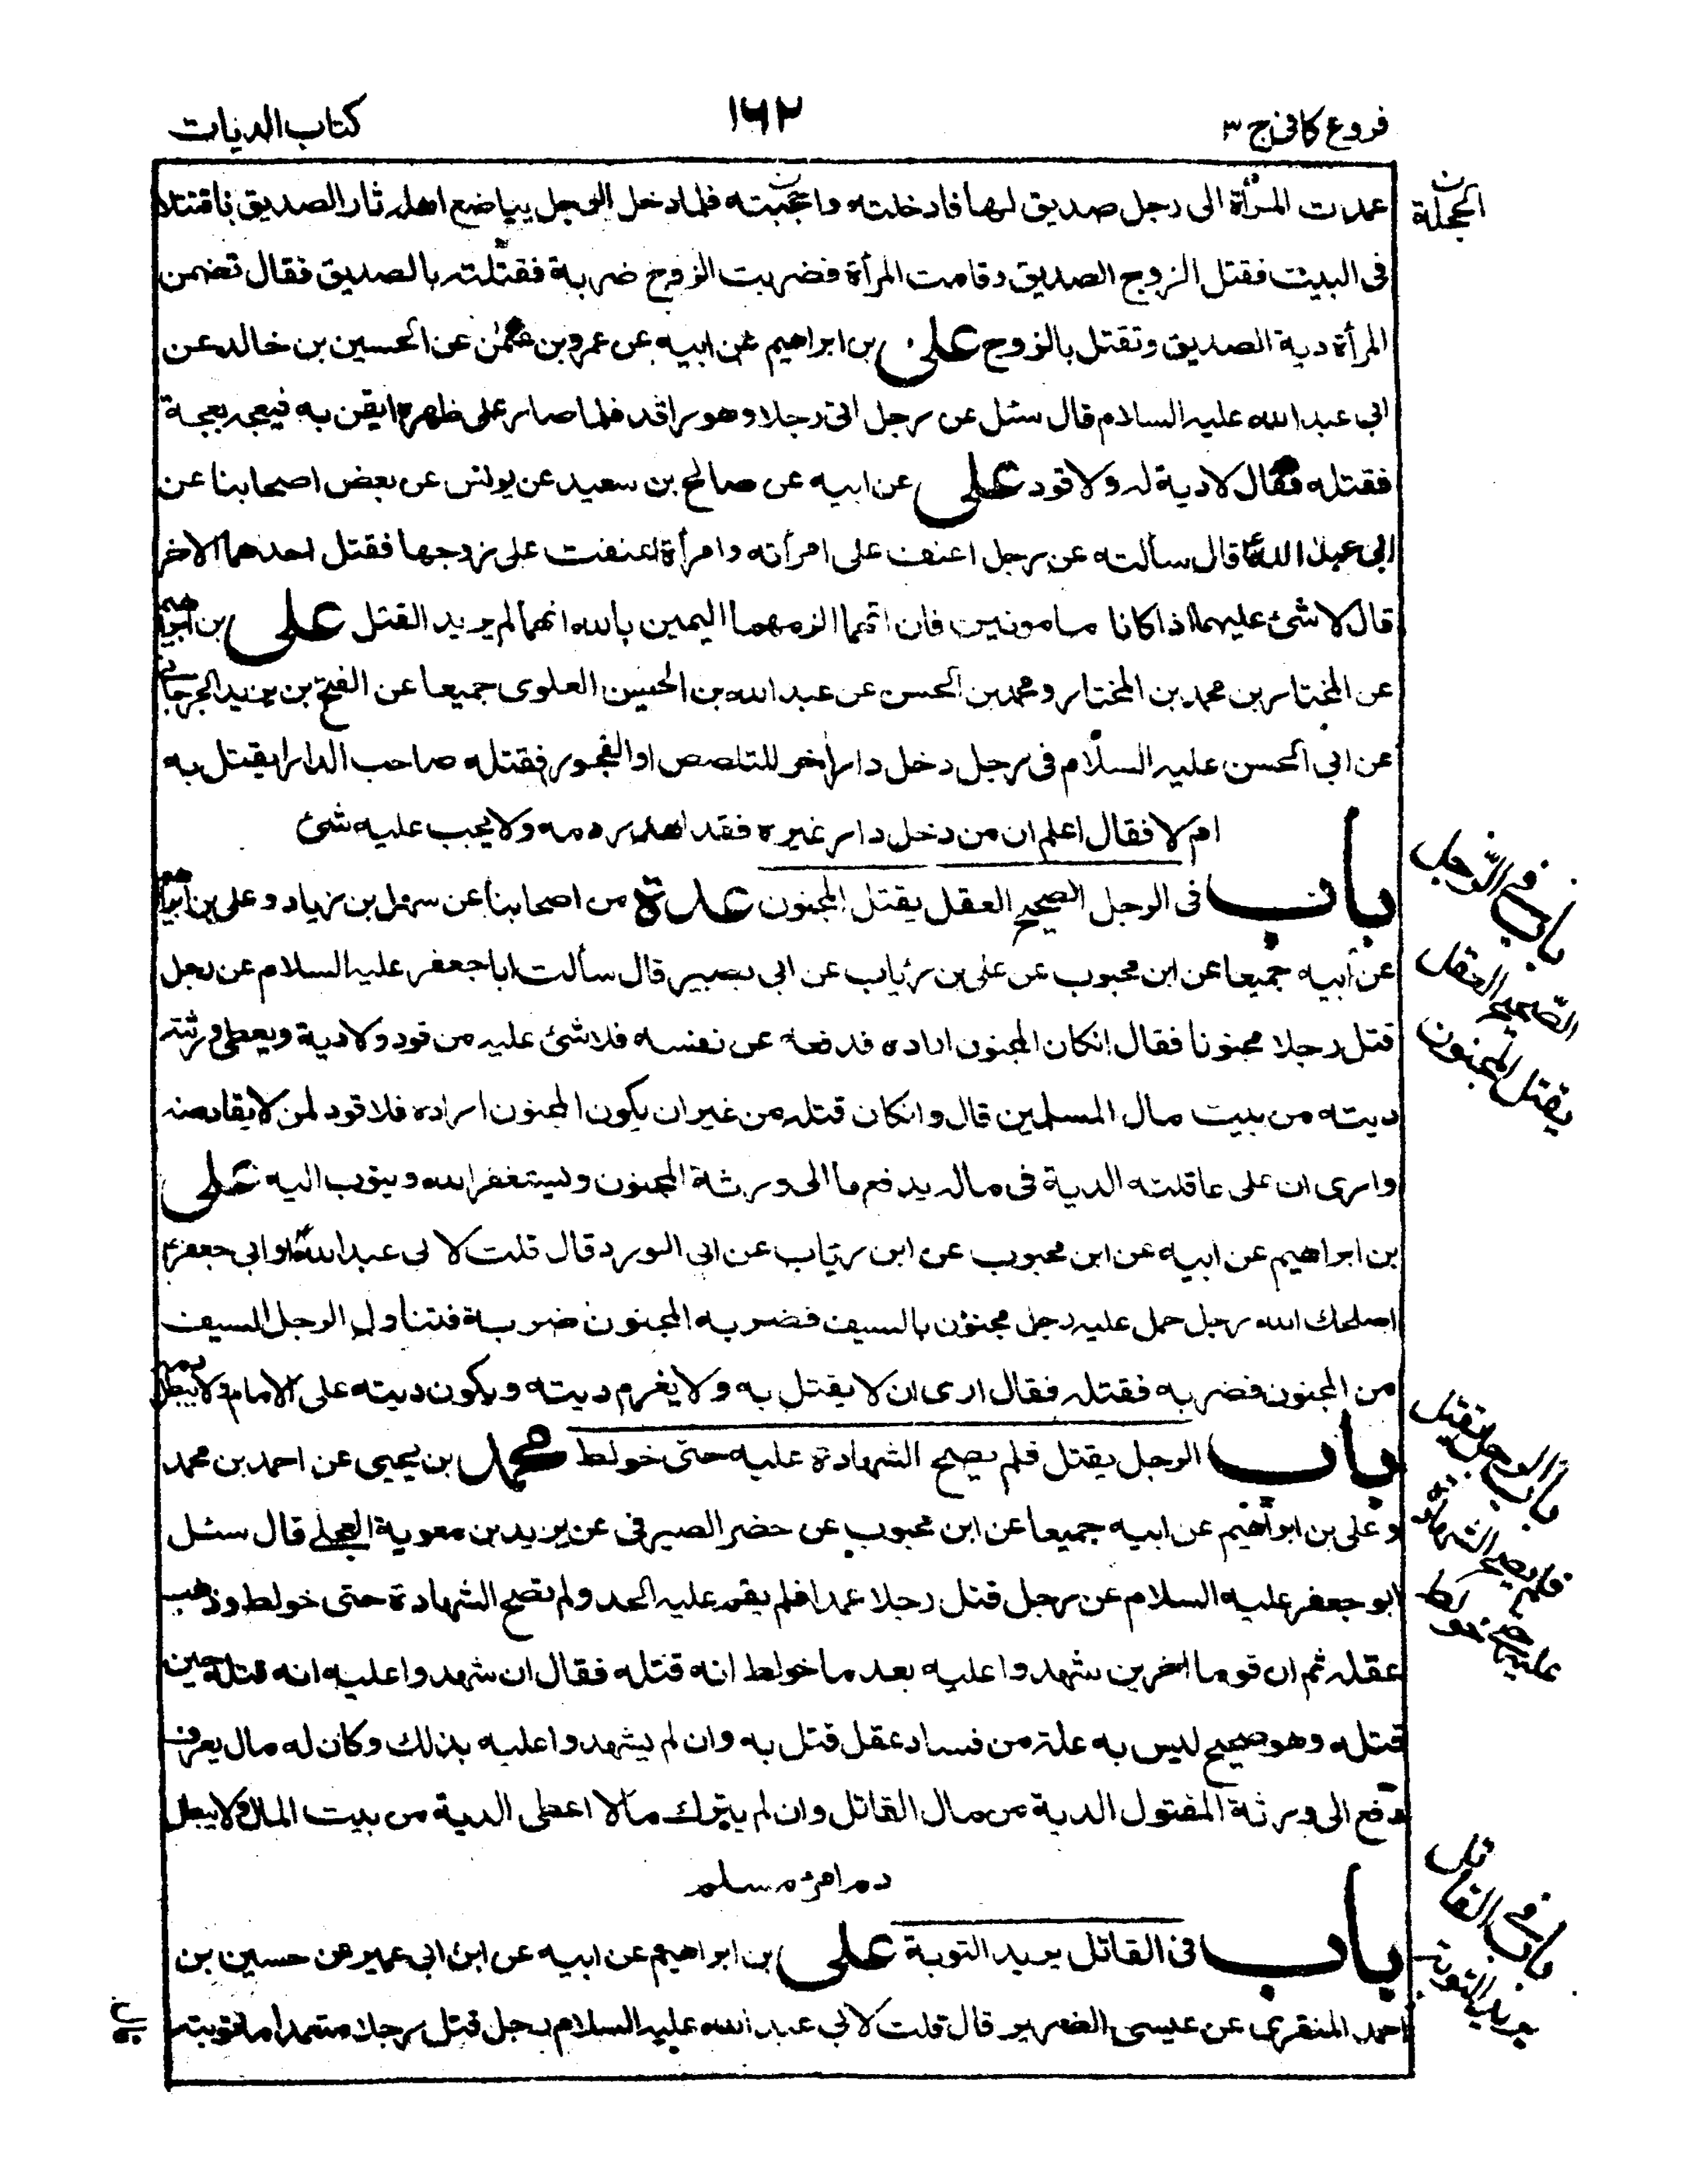 فروع کافی ج ۳
۱۶۲
کتاب الدیات
عمدت المرأة الی رجل صدیق لها فادخلته واحجبته فلما دخل الرجل یباضع اهله ثار الصدیق فاقتتلا
الحجلة ن
فی البیت فقتل الزوج الصدیق وقامت المرأة فضربت الزوج ضربة فقتلته بالصدیق فقال تضمن
المرأة دیة الصدیق وتقتل بالزوج علی بن ابراهیم عن ابیه عن عمرو بن عثمن عن الحسین بن خالد عن
ابی عبد الله علیه السلام قال سئل عن رجل اتی رجلا وهو راقد فلما صار علی ظهره ایقن به فبعجه بعجة
فقتله فقال لا دیة له ولا قود علی عن ابیه عن صالح بن سعید عن یونس عن بعض اصحابنا عن
ابی عبد الله ع قال سألته عن رجل اعنف علی امرأته وامرأة اعنفت علی زوجها فقتل احدهما الاخر
قال لا شئ علیهما اذا کانا مامونین فان اتهما الزمهما الیمین بالله انهما لم یرید القتل علی بن ابراهیم
عن المختار بن محمد بن المختار ومحمد بن الحسن عن عبد الله بن الحسین العلوی جمیعا عن الفتح بن یزید الجرجانی
عن ابی الحسن علیه السلام فی رجل دخل دار اخر للتلصص او الفجور فقتله صاحب الدار ایقتل به
ام لا فقال اعلم ان من دخل دار غیره فقد اهدر دمه ولا یجب علیه شئ
باب فی الرجل الصحیح العقل یقتل المجنون عدة من اصحابنا عن سهل بن زیاد وعلی بن ابراهیم
باب فی الرجل
الصحیح العقل
یقتل المجنون
عن أبیه جمیعا عن ابن محبوب عن علی بن رئاب عن ابی بصیر قال سألت ابا جعفر علیه السلام عن رجل
قتل رجلا مجنونا فقال انکان المجنون اراده فدفعه عن نفسه فلا شئ علیه من قود ولا دیة ویعطی ورثته
دیته من بیت مال المسلمین قال وانکان قتله من غیر ان یکون المجنون اراده فلا قود لمن لا یقاد منه
واری ان علی عاقلته الدیة فی ماله یدفعها الی ورثة المجنون ویستغفر الله ویتوب الیه علی
بن ابراهیم عن ابیه عن ابن محبوب عن ابن رئاب عن ابی الورد قال قلت لا بی عبد الله ع او ابی جعفر ع
اصلحك الله رجل حمل علیه رجل مجنون بالسیف فضربه المجنون ضربة فتناول الرجل السیف
من المجنون فضربه فقتله فقال اری ان لا یقتل به ولا یغرم دیته ویکون دیته علی الامام ولا یبطل دمه
باب الرجل یقتل فلم یصح الشهادة علیه حتی خولط محمد بن یحیی عن احمد بن محمد
باب الرجل یقتل
فلم یصح الشهادة
علیه حتی خولط
وعلی بن ابراهیم عن ابیه جمیعا عن ابن محبوب عن خضر الصیرفی عن یزید بن معویة العجلی قال سئل
ابو جعفر علیه السلام عن رجل قتل رجلا عمدا فلم یقم علیه الحد ولم تصح الشهادة حتی خولط وذهب
عقله ثم ان قوما اخرین شهدوا علیه بعد ما خولط انه قتله فقال ان شهدوا علیه انه قتله حین
قتله وهو صحیح لیس به علة من فساد عقل قتل به وان لم یشهدوا علیه بذلك وکان له مال یعرف
دفع الی ورثة المقتول الدیة من مال القاتل وان لم یترك مالا اعطی الدیة من بیت المال ولا یبطل
دم امرئ مسلم
باب فی القاتل یرید التوبة علی بن ابراهیم عن ابیه عن ابن ابی عمیر عن حسین بن
باب فی القاتل
یرید التوبة
احمد المنقری عن عیسی الضریر قال قلت لابی عبد الله علیه السلام رجل قتل رجلا متعمدا ما توبته